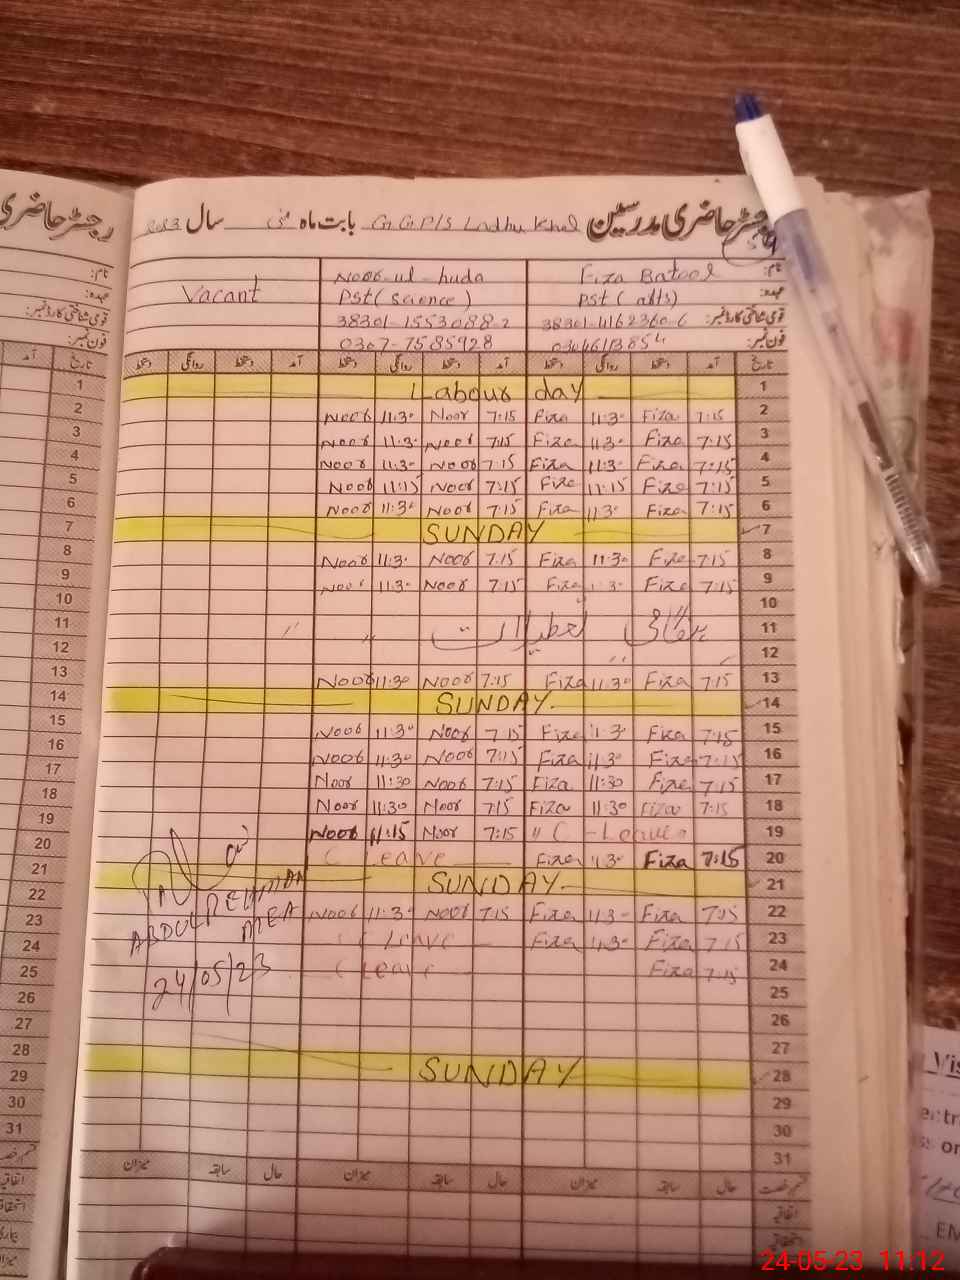 رجسٹر حاضری مدرسین GGP/S Ladhu Khel بابت ماہ مئی سال 2023
رجسٹر حاضری
نام: Fiza Batool Noor-ul-huda
عہدہ: PST (arts) PST (science) Vacant
قومی شناختی کارڈ نمبر: 38301-4162360-6 38301-1553088-2
فون نمبر: 0307-7585928
تاریخ آمد دستخط روانگی دستخط آمد دستخط روانگی دستخط آمد دستخط روانگی دستخط
1 Labour day
2 7:15 Fiza 11:30 Fiza 7:15 Noor 11:30 Noor
3 7:15 Fiza 11:30 Fiza 7:15 Noor 11:30 Noor
4 7:15 Fiza 11:30 Fiza 7:15 Noor 11:30 Noor
5 7:15 Fiza 11:15 Fiza 7:15 Noor 11:15 Noor
6 7:15 Fiza 11:30 Fiza 7:15 Noor 11:30 Noor
7 SUNDAY
8 7:15 Fiza 11:30 Fiza 7:15 Noor 11:30 Noor
9 7:15 Fiza 11:30 Fiza 7:15 Noor 11:30 Noor
10
11 تعطیلات
12
13 7:15 Fiza 11:30 Fiza 7:15 Noor 11:30 Noor
14 SUNDAY
15 7:15 Fiza 11:30 Fiza 7:15 Noor 11:30 Noor
16 7:15 Fiza 11:30 Fiza 7:15 Noor 11:30 Noor
17 7:15 Fiza 11:30 Fiza 7:15 Noor 11:30 Noor
18 7:15 Fiza 11:30 Fiza 7:15 Noor 11:30 Noor
19 C-Leave 7:15 Noor 11:15 Noor
20 7:15 Fiza 11:30 Fiza C Leave
21 SUNDAY
22 7:15 Fiza 11:30 Fiza 7:15 Noor 11:30 Noor
23 7:15 Fiza 11:30 Fiza C Leave
24 7:15 Fiza C Leave
25
26
27
28 SUNDAY
29
30
31
ABDUL REHMAN
MEA
24/05/23
قسم رخصت حال سابقہ میزان حال سابقہ میزان حال سابقہ میزان
اتفاقیہ
تاریخ آمد
1
2
3
4
5
6
7
8
9
10
11
12
13
14
15
16
17
18
19
20
21
22
23
24
25
26
27
28
29
30
31
قسم رخصت
اتفاقیہ
میزان
24-05-23 11:12